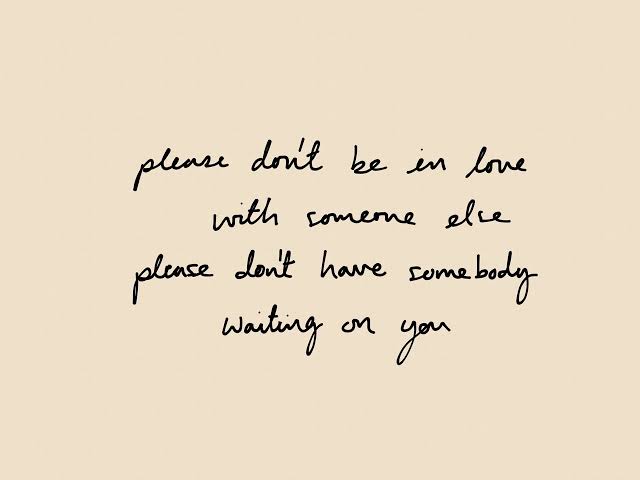 please don't be in love
with someone else
please don't have somebody
waiting on you